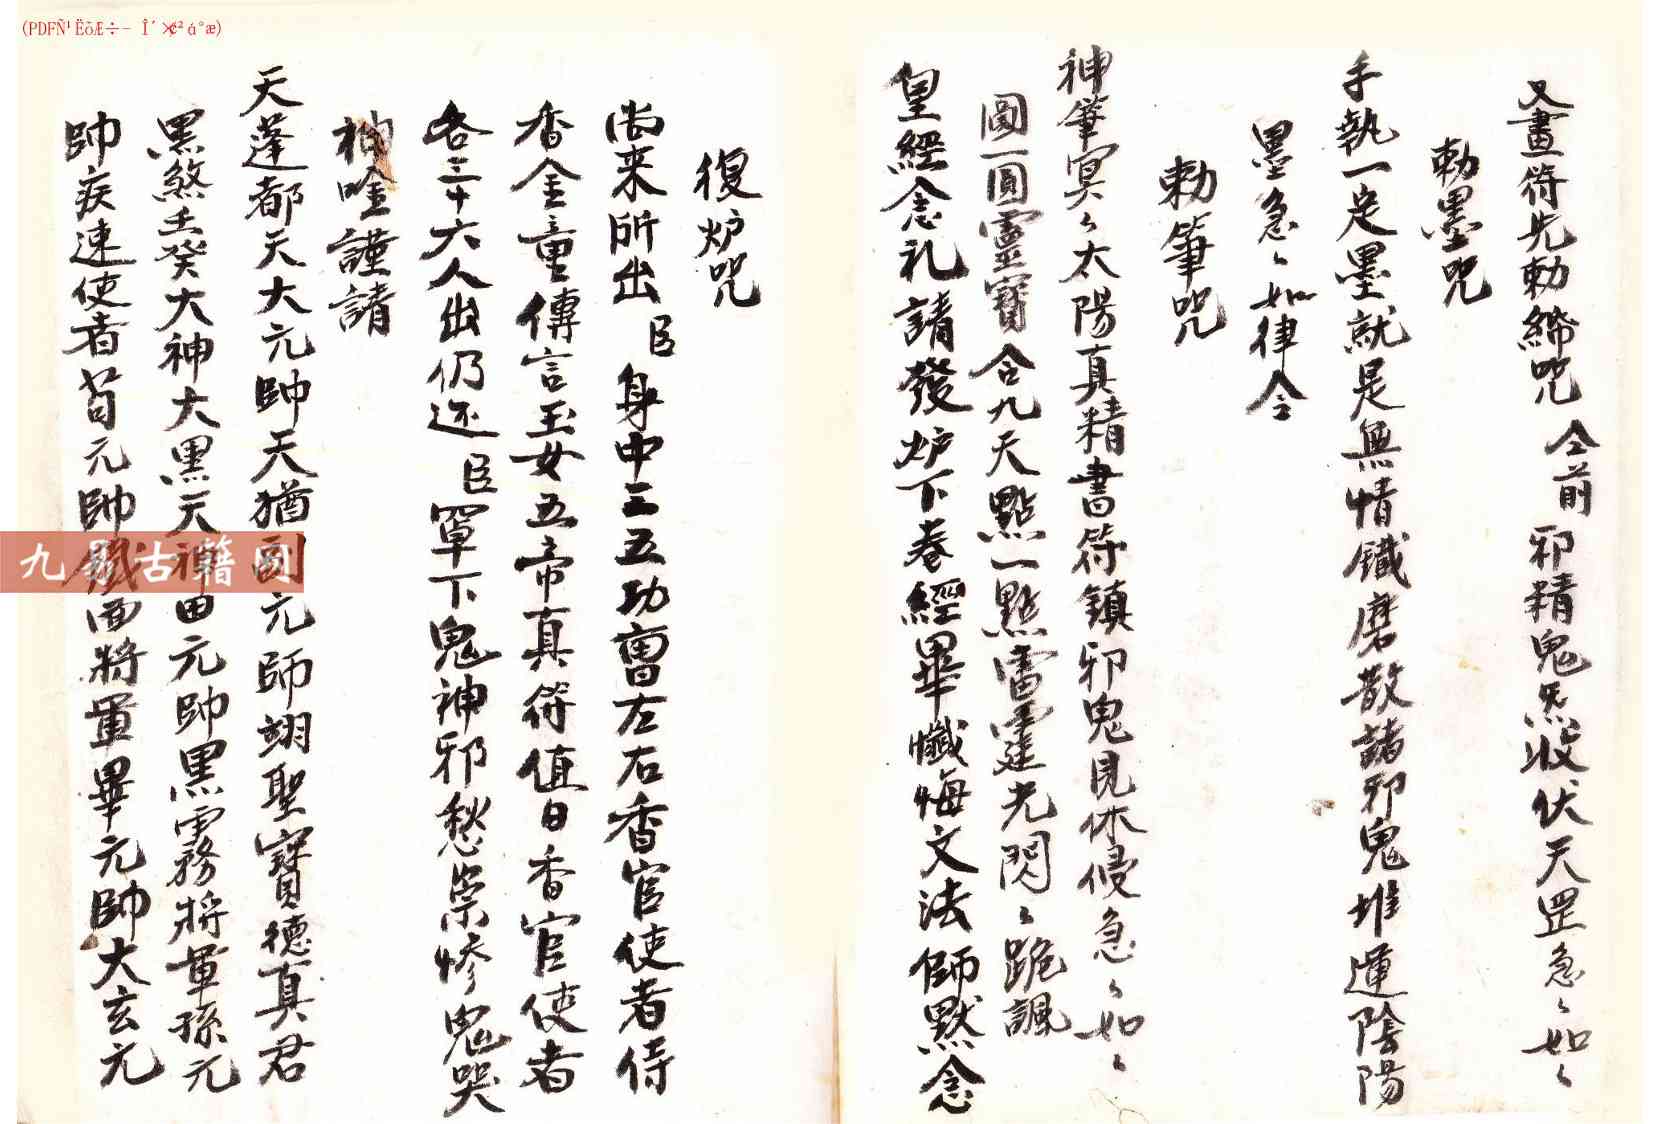 (PDFÑ¹ËõÆ÷- Î´×¢²á°æ)
又畫符先勅締咒 仝前 邪精鬼炁收伏天罡急〻如〻
勅墨咒
手執一定墨墨就是無情鐵磨散諸邪鬼堆運陰陽
墨急〻如律令
勅筆咒
神筆冥〻太陽真精書符鎮邪鬼見休侵急〻如〻
圓一圓靈寶合九天點一點雷霆光閃〻跪諷
皇經念礼請發炉下卷經畢懺悔文法師默念
復炉咒
尚来所出臣身中三五功曹左右香官使者侍
香金童傳言玉女五帝真符值日香官使者
各三十六人出仍还臣罩下鬼神邪愁祟慘鬼哭
神唫謹請
天蓬都天大元帥天猶副元帥翊聖寶德真君
黑煞壬癸大神大黑天神田元帥黑霧將軍孫元
帥疾速使者苟元帥鐵面將軍畢元帥大玄元
九影古籍网